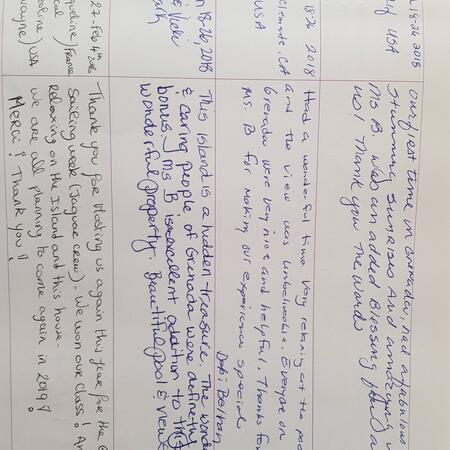 18-26 2018
USA
Our first time in Grenader, had a fabulous
stunning sunrises and amazing
Ms B. was an added Blessing for
us! Thank you The Wards
18-26 2018
Clemente, CA
USA
Had a wonderful time very relaxing at the pool
and the view was unbelievable. Everyone on
Grenada were very nice and helpful. Thanks for
Ms. B for making our experience special
Debi
18-26, 2018
& Vicki
This island is a hidden treasure. The wonde
& caring people of Grenada were definetly
bonus. Ms B is excellent addition to this
wonderful property. Beautiful pool & views
27-Feb 4th 2018
queline) France
cal
oline) USA
wayne)
Thank you for Hosting us again this year for the G
Sailing week (Jaguar crew). We won our Class! An
relaxing on the Island and this house.
we are all planning to come again in 2019!
Merci! Thank you!